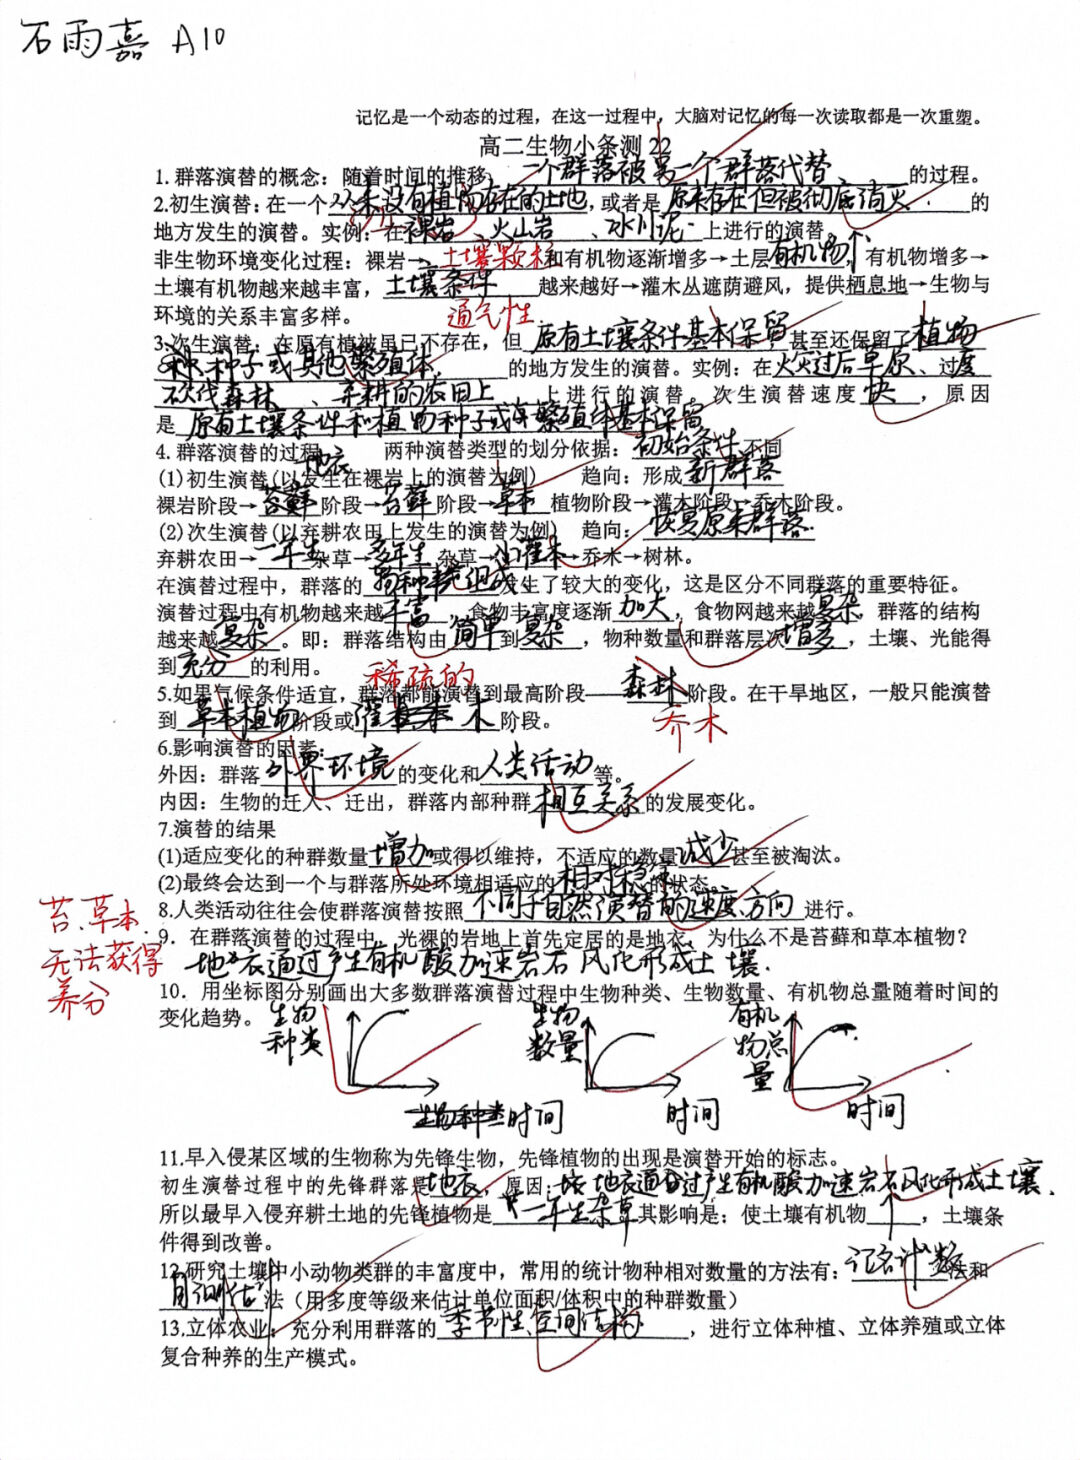 石雨嘉 A10
记忆是一个动态的过程，在这一过程中，大脑对记忆的每一次读取都是一次重塑。
高二生物小条测 22
1. 群落演替的概念：随着时间的推移 一个群落被另一个群落代替 的过程。
2.初生演替：在一个 从来没有植物存在的土地，或者是 原来存在但被彻底消灭 的
地方发生的演替。实例：在 裸岩 、火山岩 、冰川泥 上进行的演替。
非生物环境变化过程：裸岩→ 土壤颗粒 和有机物逐渐增多→土层 有机物↑，有机物增多→
土壤有机物越来越丰富， 土壤条件 越来越好→灌木丛遮荫避风，提供栖息地→生物与
通气性
环境的关系丰富多样。
3.次生演替：在原有植被虽已不存在，但 原有土壤条件基本保留，甚至还保留了 植物
种子或其他繁殖体 的地方发生的演替。实例：在 火灾过后草原、过度
砍伐森林 、弃耕的农田上 上进行的演替。次生演替速度 快 ，原因
是 原有土壤条件和植物种子或其繁殖体基本保留
4. 群落演替的过程 两种演替类型的划分依据：初始条件 不同
(1)初生演替(以发生在裸岩上的演替为例) 趋向：形成 新群落
地衣
裸岩阶段→ 苔藓 阶段→ 苔藓 阶段→ 草本 植物阶段→灌木阶段→乔木阶段。
(2)次生演替(以弃耕农田上发生的演替为例) 趋向：恢复原来群落
弃耕农田→ 一年生 杂草→ 多年生 杂草→ 小灌木 →乔木→树林。
在演替过程中，群落的 物种组成 发生了较大的变化，这是区分不同群落的重要特征。
演替过程中有机物越来越 丰富 ，食物丰富度逐渐 加大 ，食物网越来越 复杂 。群落的结构
越来越 复杂 。即：群落结构由 简单 到 复杂 ，物种数量和群落层次 增多 ，土壤、光能得
到 充分 的利用。
稀疏的
5.如果气候条件适宜，群落都能演替到最高阶段—— 森林 阶段。在干旱地区，一般只能演替
到 草本植物 阶段或 灌木 阶段。
乔木
6.影响演替的因素：
外因：群落 外界环境 的变化和 人类活动 等。
内因：生物的迁入、迁出，群落内部种群 相互关系 的发展变化。
7.演替的结果
(1)适应变化的种群数量 增加 或得以维持，不适应的数量 减少 甚至被淘汰。
(2)最终会达到一个与群落所处环境相适应的 相对稳定 的状态。
8.人类活动往往会使群落演替按照 不同于自然演替的速度、方向 进行。
9．在群落演替的过程中，光裸的岩地上首先定居的是地衣，为什么不是苔藓和草本植物？
地衣通过产生有机酸加速岩石风化形成土壤.
苔、草本
无法获得
养分
10．用坐标图分别画出大多数群落演替过程中生物种类、生物数量、有机物总量随着时间的
变化趋势。
生物种类
时间
生物数量
时间
有机物总量
时间
11.早入侵某区域的生物称为先锋生物，先锋植物的出现是演替开始的标志。
初生演替过程中的先锋群落是 地衣 ，原因： 地衣通过产生有机酸加速岩石风化形成土壤.
所以最早入侵弃耕土地的先锋植物是 一年生杂草 其影响是：使土壤有机物 ↑ ，土壤条
件得到改善。
12.研究土壤中小动物类群的丰富度中，常用的统计物种相对数量的方法有：记名计算 法和
目测估计 法（用多度等级来估计单位面积/体积中的种群数量）
13,立体农业：充分利用群落的 季节性、空间结构 ，进行立体种植、立体养殖或立体
复合种养的生产模式。